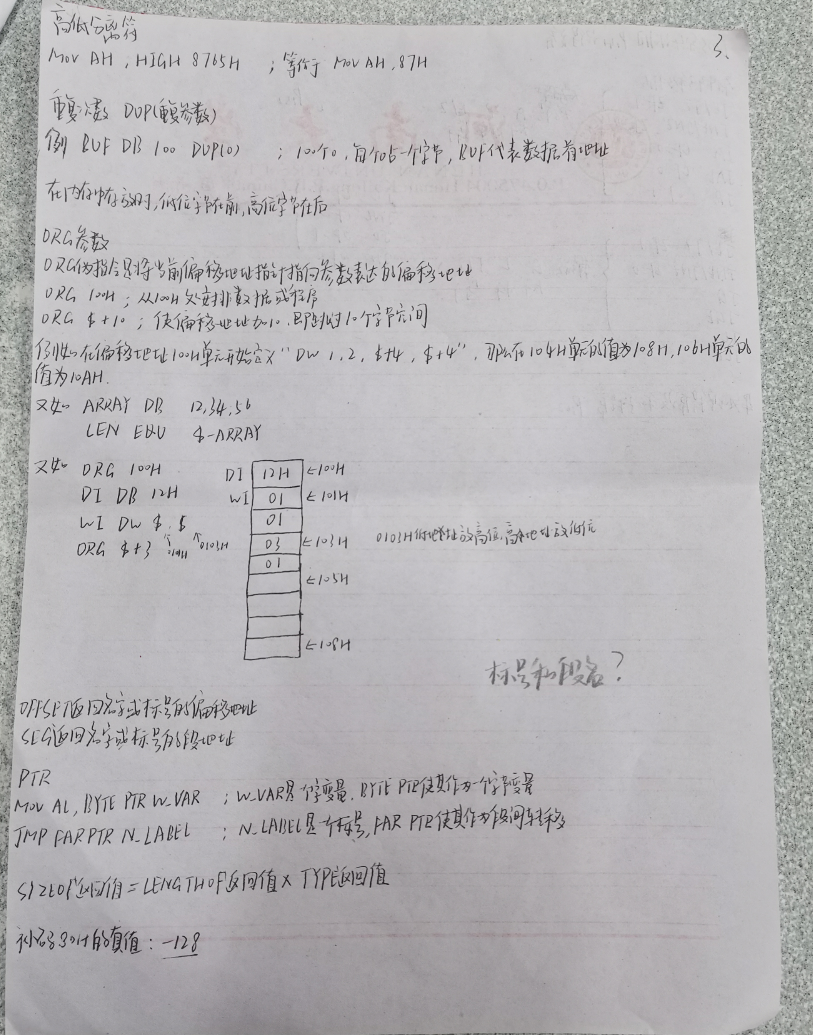 3.
高低分离符
MOV AH, HIGH 8765H ; 等价于 MOV AH, 87H
重复次数 DUP(重复参数)
例 BUF DB 100 DUP(0) ; 100个0, 每个占一个字节, BUF代表数据首地址
在内存中存放时, 低位字节在前, 高位字节在后
ORG 参数
ORG伪指令是将当前偏移地址指针指向参数表达的偏移地址
ORG 100H ; 从100H处安排数据或程序
ORG $+10 ; 使偏移地址加10, 即跳过10个字节空间
例如在偏移地址100H单元开始定义“DW 1, 2, $+4, $+4”, 那么在104H单元的值为108H, 106H单元的
值为10AH.
又如 ARRAY DB 12,34,56
LEN EQU $-ARRAY
又如 ORG 100H
DI DB 12H
WI DW $, $
ORG $+3
0103H
DI 12H ←100H
WI 01 ←101H
01
03 ←103H
01
←105H
←108H
0103H低地址放高位, 高地址放低位
标号和段名?
OFFSET返回名字或标号的偏移地址
SEG返回名字或标号的段地址
PTR
MOV AL, BYTE PTR W_VAR ; W_VAR是一个字变量, BYTE PTR使其作为一个字节变量
JMP FAR PTR N_LABEL ; N_LABEL是一个标号, FAR PTR使其作为段间转移
SIZEOF返回值 = LENGTHOF返回值 × TYPE返回值
补码80H的真值: -128